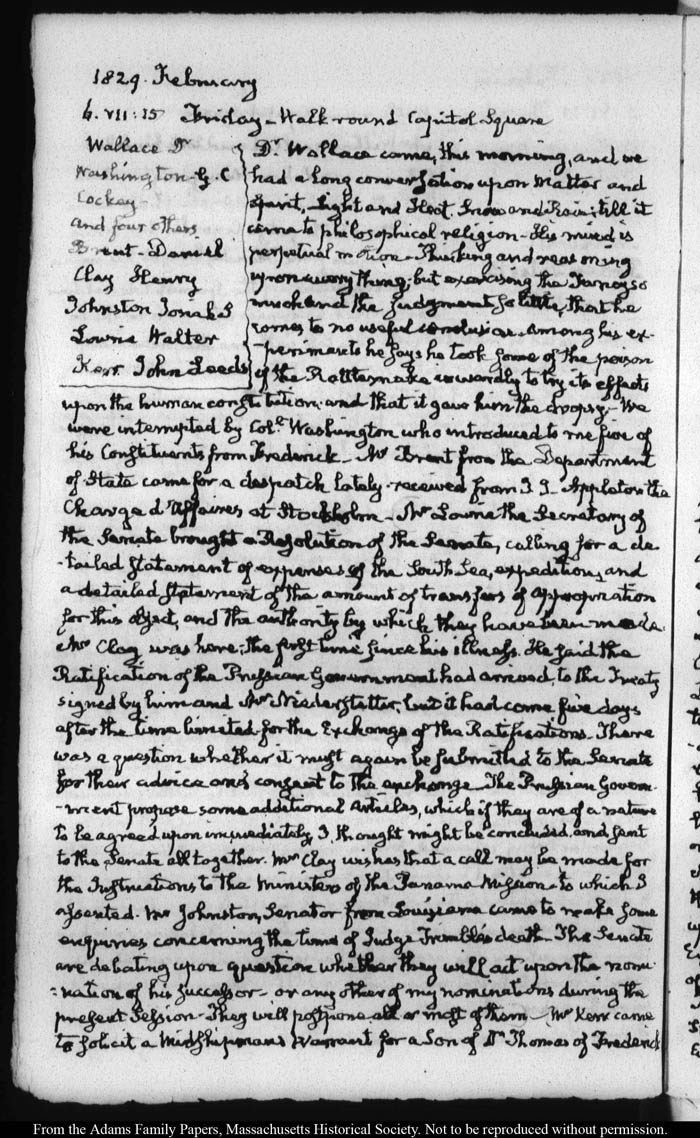 1829. February
6. VII: 15 Friday - Walk round Capitol Square
Wallace Dr
Washington - G. C
Cockey -
and four others
Brent - Daniel
Clay Henry
Johnston Josiah S
Lowrie Walter
Kerr John Leeds
Dr. Wallace came, this morning, and we
had a long conversation upon Matter and
Spirit, Light and Heat, Snow and Rain; till it
came to philosophical religion - His mind is
perpetual motion - Thinking and reasoning
upon every thing; but exercising the Fancy so
much and the judgment so little, that he
comes to no useful conclusion. Among his ex-
-periments he says he took some of the poison
of the Rattlesnake inwardly to try its effects
upon the human constitution; and that it gave him the dropsy - We
were interrupted by Coll. Washington who introduced to me five of
his Constituents from Frederick - Mr Brent from the Department
of State came for a despatch lately received from J. J. Appleton the
Chargé d'Affaires at Stockholm - Mr Lowrie the Secretary of
the Senate brought a Resolution of the Senate, calling for a de
-tailed statement of expenses of the South Sea, expedition, and
a detailed statement of the amount of transfers of appropriation
for this object, and the authority by which they have been made.
Mr Clay was here; the first time since his illness. He said the
Ratification of the Prussian Government had arrived, to the Treaty
signed by him and Mr Niederstetter; but it had come five days
after the time limited for the Exchange of the Ratifications. There
was a question whether it must again be submitted to the Senate
for their advice and consent to the exchange. The Prussian Govern-
-ment propose some additional Articles, which if they are of a nature
to be agreed upon immediately, I thought might be concluded, and sent
to the Senate all together. Mr Clay wishes that a call may be made for
the Instructions to the Ministers of the Panama Mission - to which I
assented. Mr Johnston, Senator from Louisiana came to make some
enquiries concerning the time of Judge Trimble's death - The Senate
are debating upon question whether they will act upon the nomi-
-nation of his successor - or any other of my nominations during the
present Session - They will postpone all or most of them - Mr Kerr came
to solicit a Midshipman's Warrant for a Son of Dr Thomas of Frederick
From the Adams Family Papers, Massachusetts Historical Society. Not to be reproduced without permission.